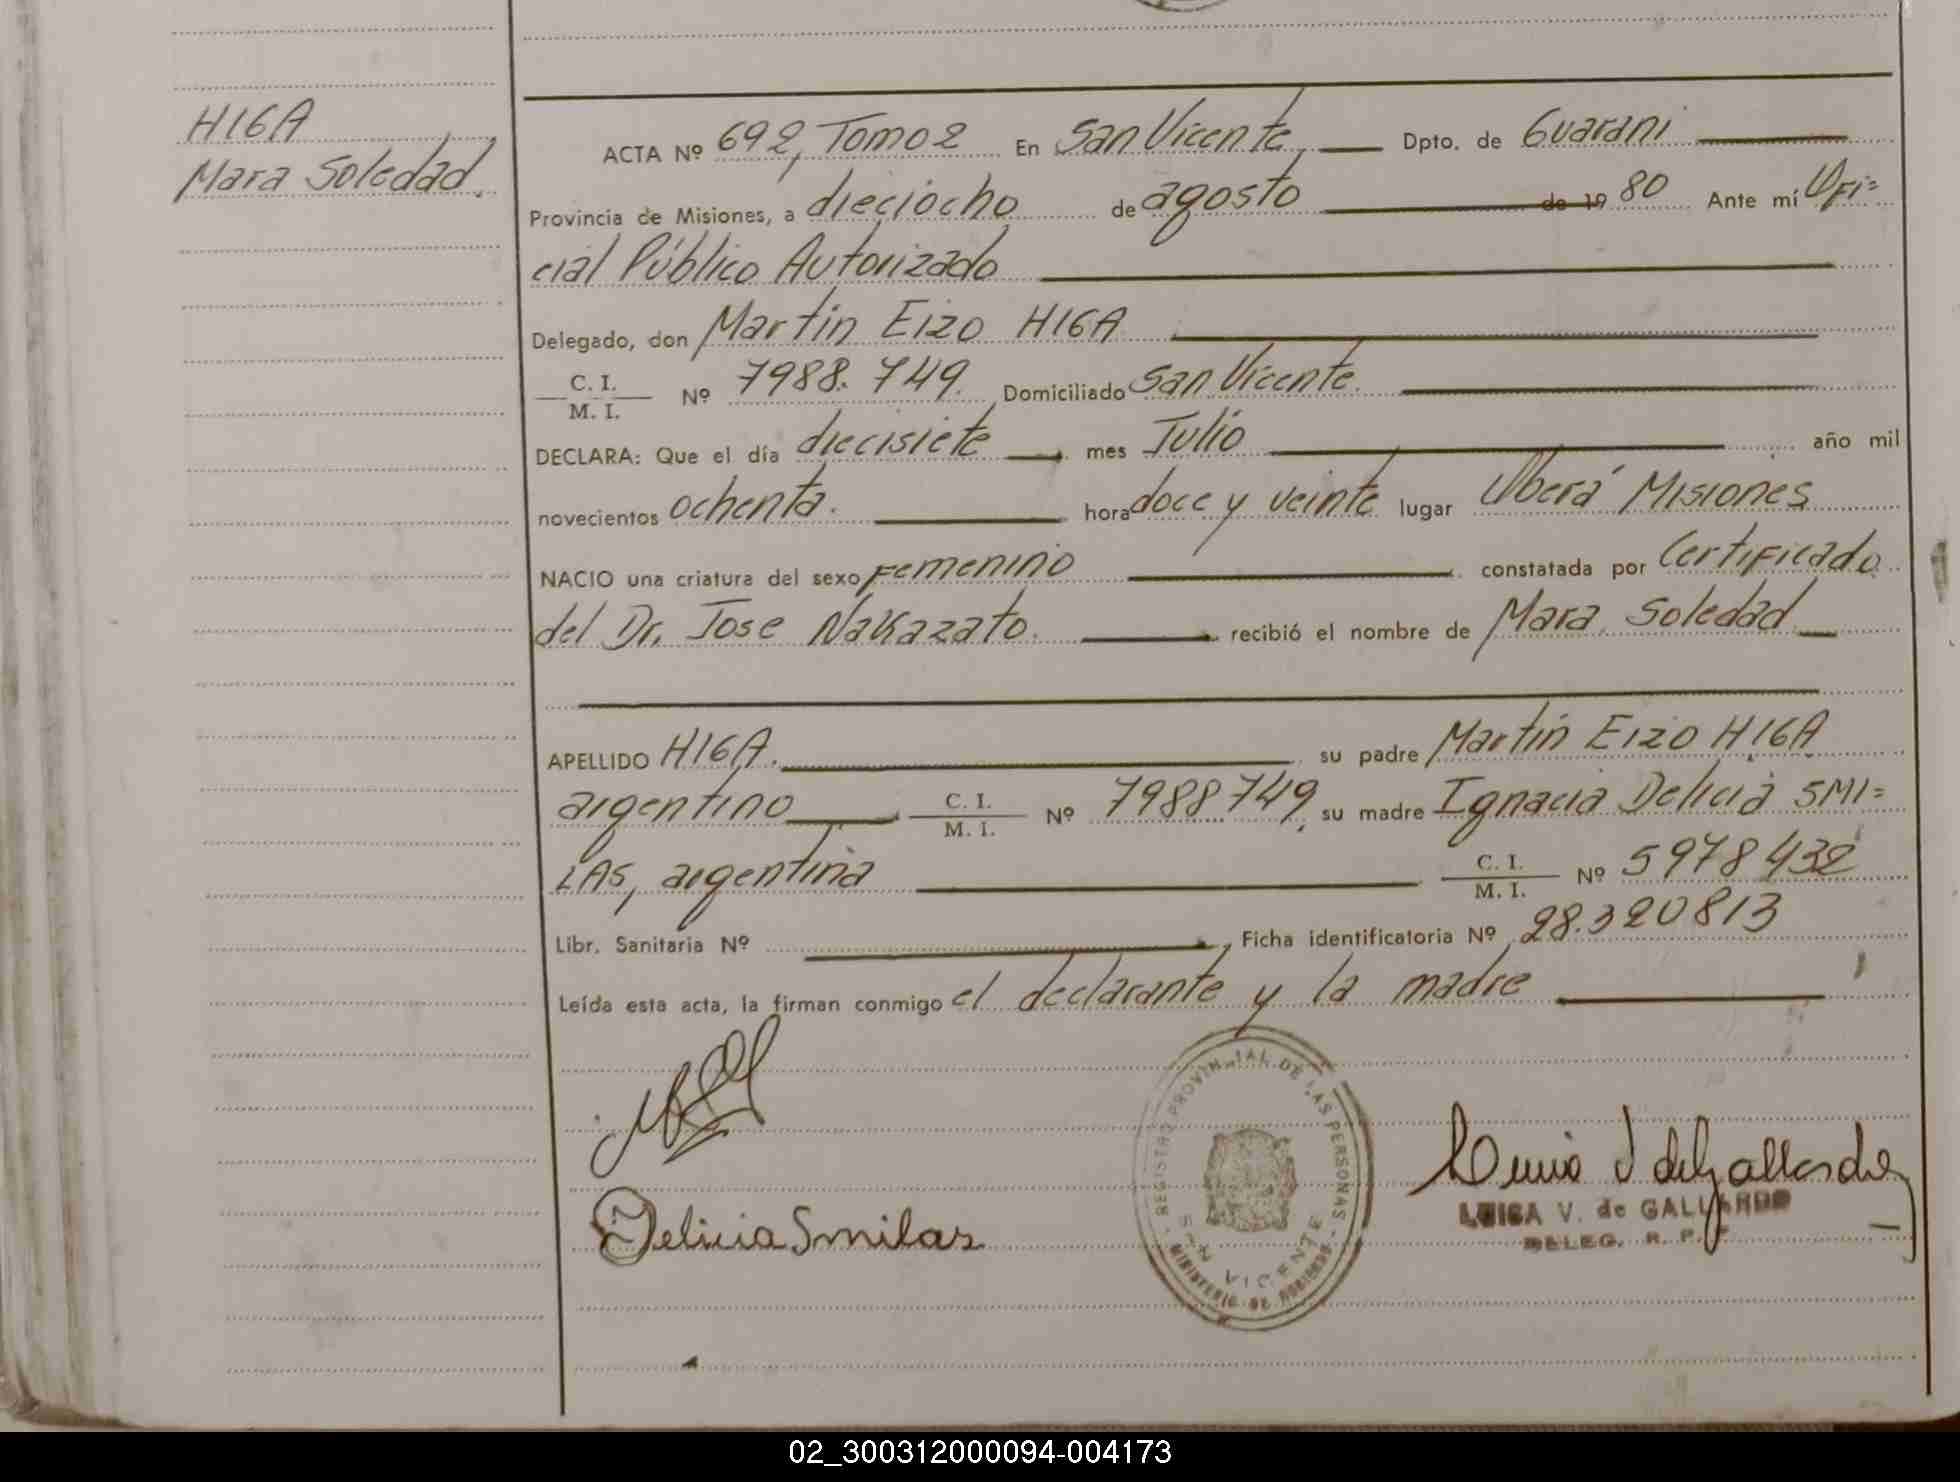 HIGA
Mara Soledad.
ACTA Nº 692, Tomo 2 En San Vicente, Dpto. de Guarani
Provincia de Misiones, a dieciocho de agosto de 19 80 Ante mí Ofi=
cial Público Autorizado
Delegado, don Martin Eizo HIGA
C. I.
M. I.
Nº 7988.749. Domiciliado San Vicente.
DECLARA: Que el día diecisiete mes Julio año mil
novecientos ochenta. hora doce y veinte lugar Oberá Misiones
NACIO una criatura del sexo femenino constatada por Certificado
del Dr. Jose Nakazato. recibió el nombre de Mara Soledad
APELLIDO HIGA. su padre Martin Eizo HIGA
argentino C. I.
M. I.
Nº 7988749, su madre Ignacia Delicia SMI=
LAS, argentina C. I.
M. I.
Nº 5978432
Libr. Sanitaria Nº , Ficha identificatoria Nº 28.320813
Leída esta acta, la firman conmigo el declarante y la madre
REGISTRO PROVINCIAL DE LAS PERSONAS
SAN VICENTE
MINISTERIO DE GOBIERNO
Delicia Smilas
LUISA V. de GALLARDO
DELEG. R. P. P.
02_300312000094-004173